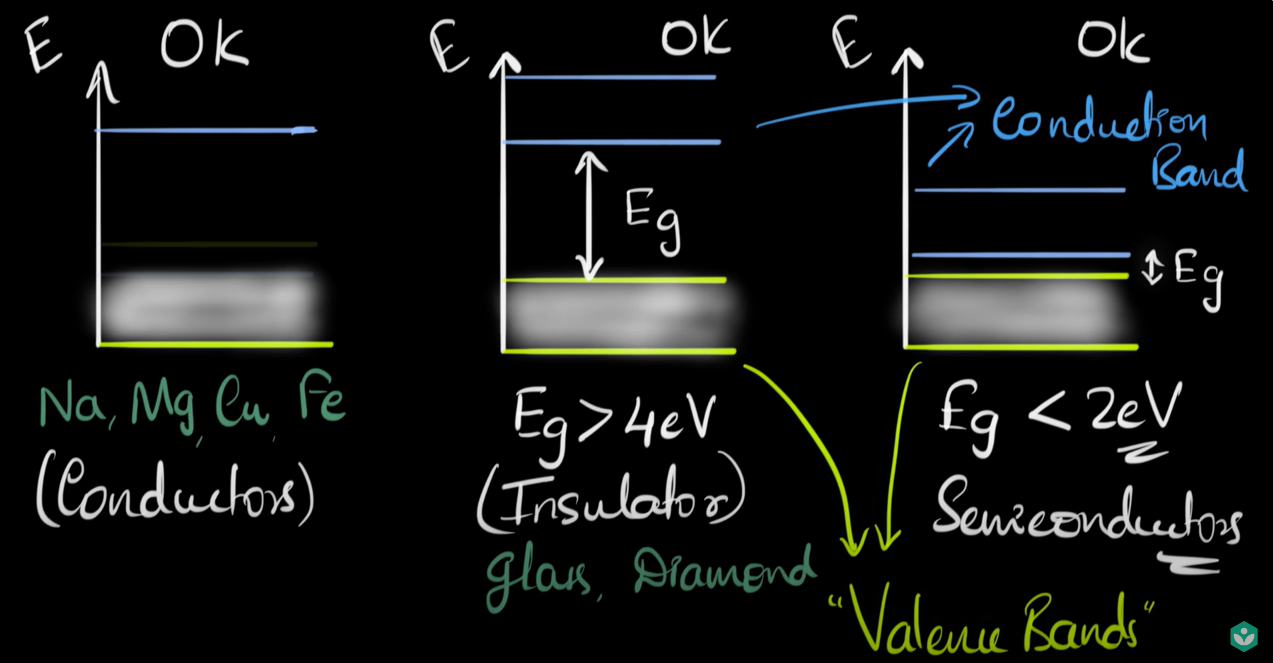 E OK
Na, Mg, Cu, Fe
(Conductors)
E OK
Eg
Eg > 4eV
(Insulator)
Glass, Diamond
E OK
Conduction
Band
Eg
Eg < 2eV
Semiconductors
"Valence Bands"